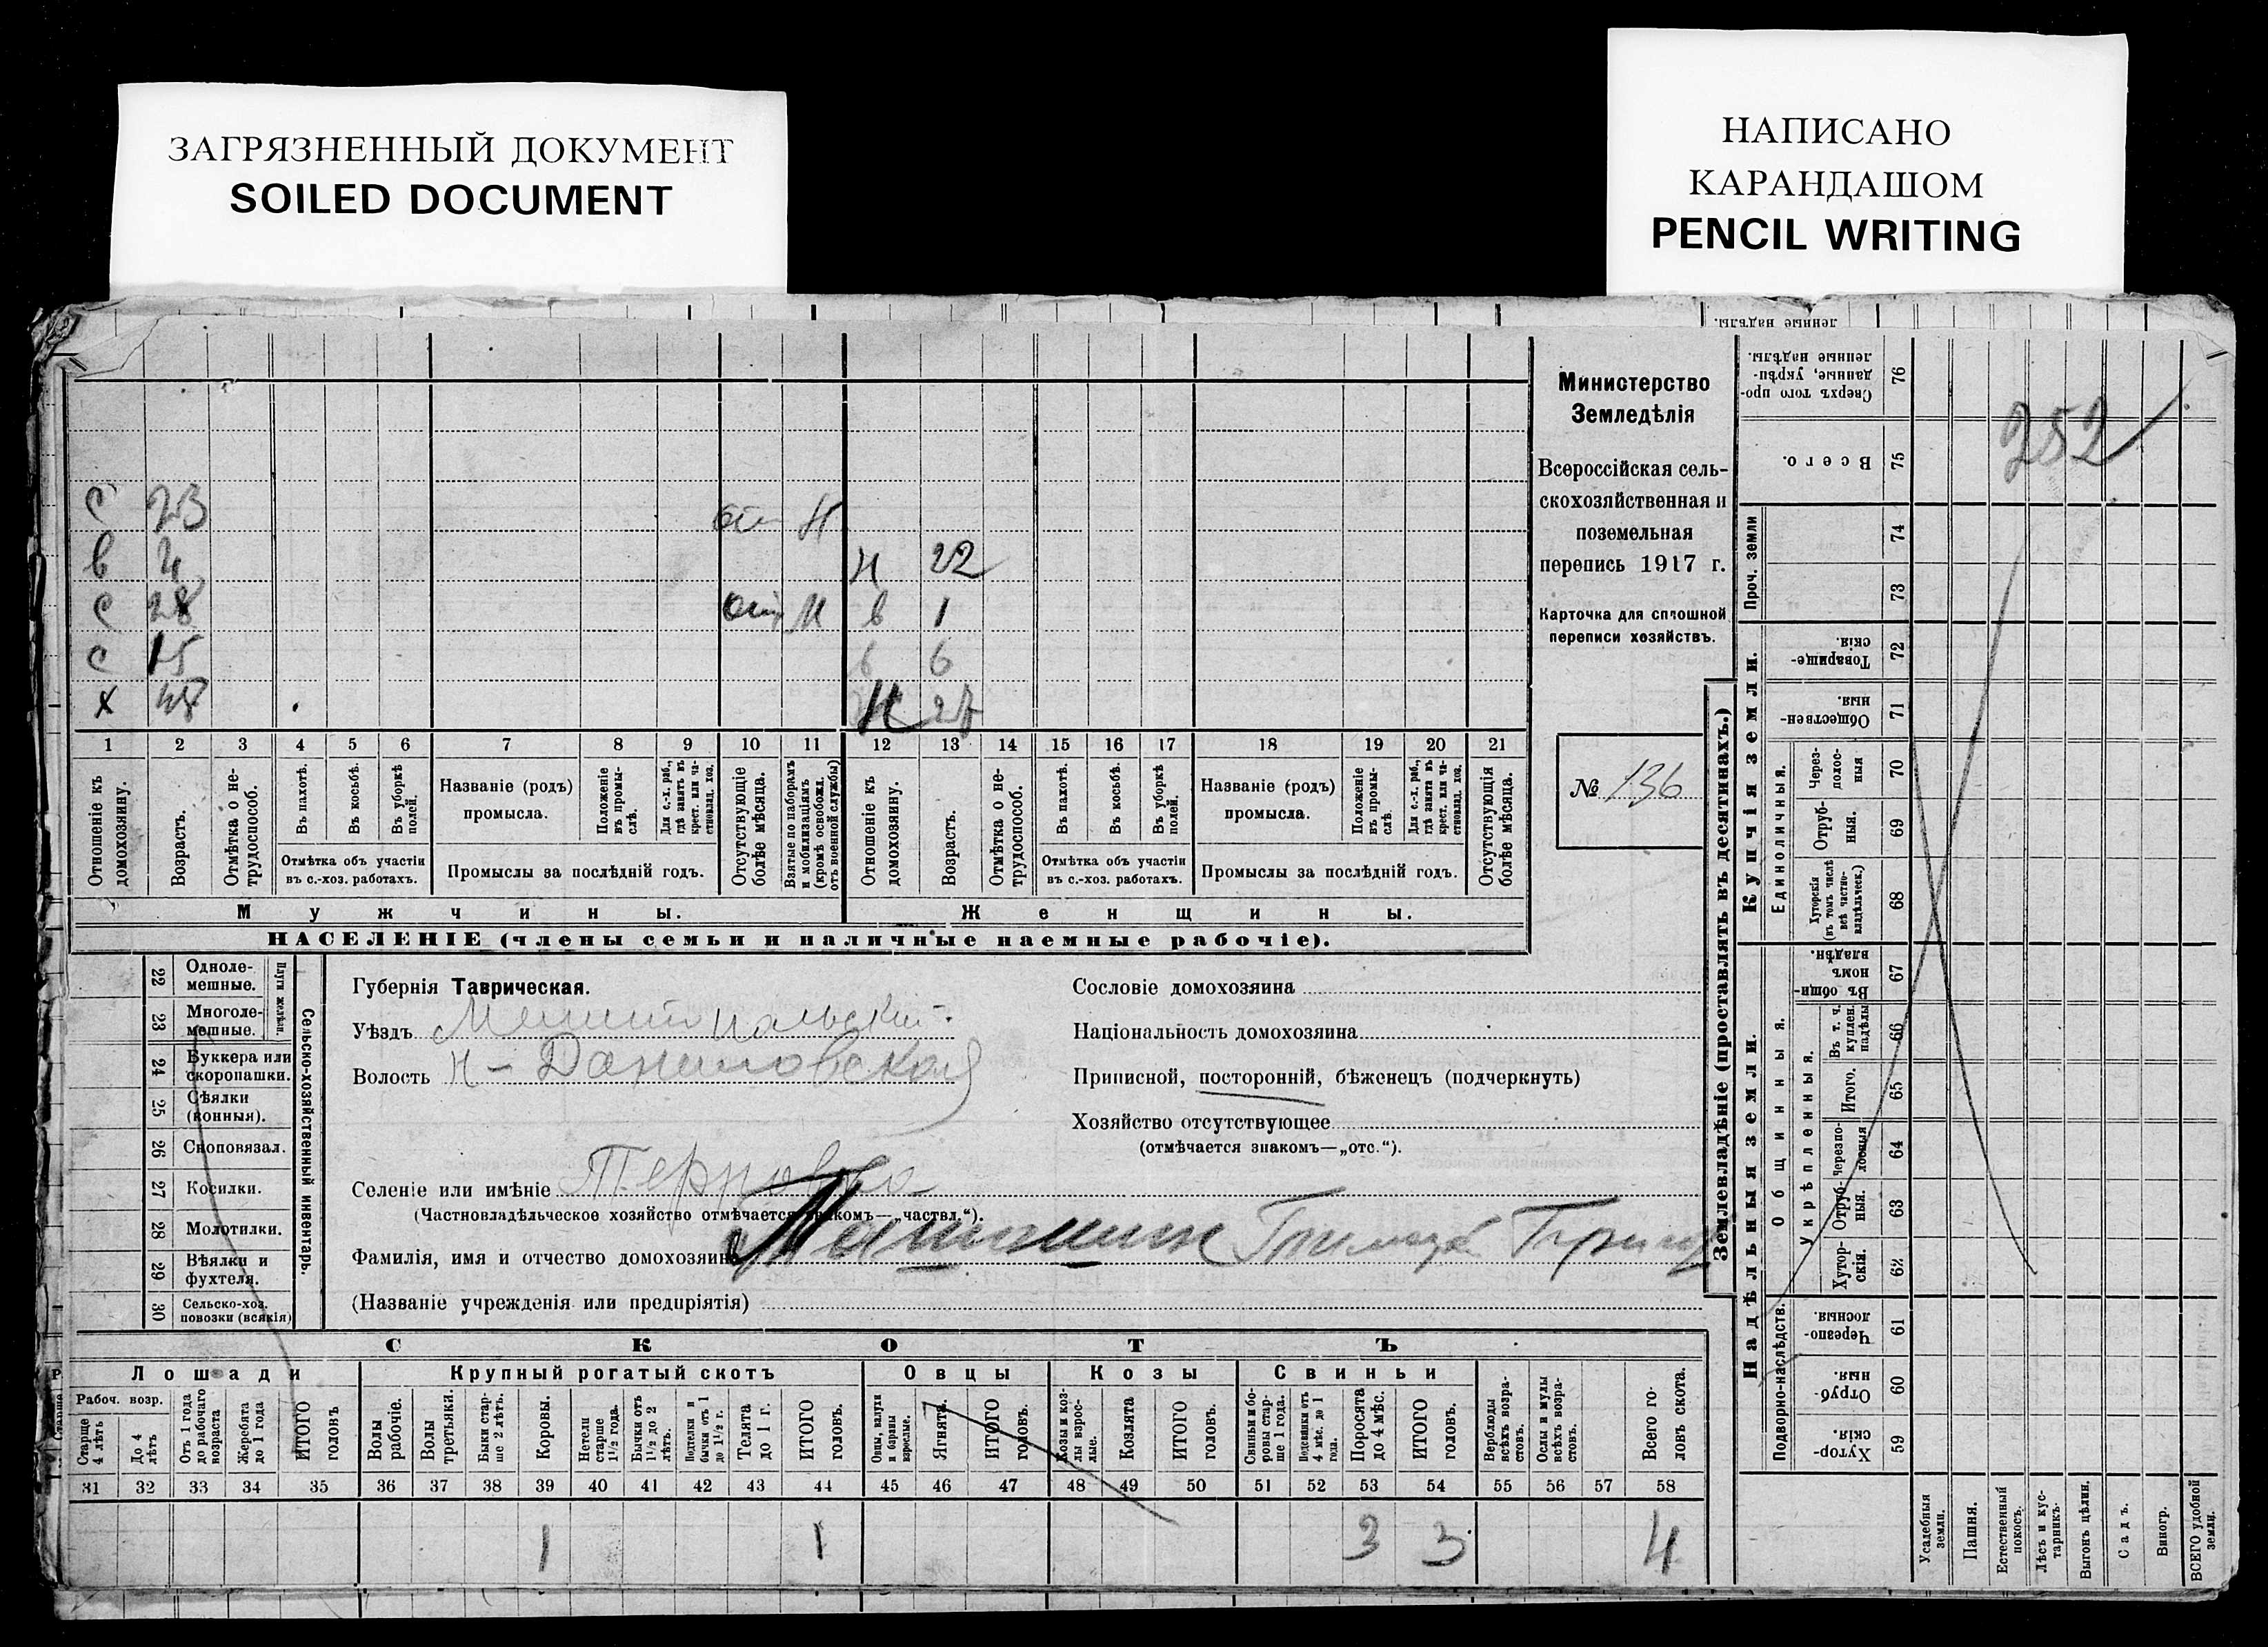 ЗАГРЯЗНЕННЫЙ ДОКУМЕНТ
SOILED DOCUMENT
НАПИСАНО
КАРАНДАШОМ
PENCIL WRITING
252
С 23 Н
в 4 Н 22
С 28 в 1
С 15 в 6
Х 48 Н 27
1 2 3 4 5 6 7 8 9 10 11 12 13 14 15 16 17 18 19 20 21
Отношеніе къ домохозяину.
Возрастъ.
Отмѣтка о не-трудоспособ.
Въ пахотѣ.
Въ косьбѣ.
Въ уборкѣ полей.
Отмѣтка объ участіи
въ с.-хоз. работахъ.
Названіе (родъ)
промысла.
Положеніе въ промы-слѣ.
Для с.-х. раб., гдѣ занятъ въ крест. или ча-стновлад. хоз.
Промыслы за послѣдній годъ.
Отсутствующіе болѣе мѣсяца.
Взятые по наборамъ и мобилизаціямъ (кромѣ освобожд. отъ военной службы)
Отношеніе къ домохозяину.
Возрастъ.
Отмѣтка о не-трудоспособ.
Въ пахотѣ.
Въ косьбѣ.
Въ уборкѣ полей.
Отмѣтка объ участіи
въ с.-хоз. работахъ.
Названіе (родъ)
промысла.
Положеніе въ промы-слѣ.
Для с.-х. раб., гдѣ занята въ крест. или ча-стновлад. хоз.
Промыслы за послѣдній годъ.
Отсутствующія болѣе мѣсяца.
Мужчины.
Женщины.
НАСЕЛЕНІЕ (члены семьи и наличные наемные рабочіе).
Министерство
Земледѣлія
Всероссійская сель-
скохозяйственная и
поземельная
перепись 1917 г.
Карточка для сплошной
переписи хозяйствъ.
№ 136
22 Одноле-мешные.
23 Многоле-мешные.
Плуги желѣзн.
24 Буккера или скоропашки.
25 Сѣялки (конныя).
26 Сноповязал.
27 Косилки.
28 Молотилки.
29 Вѣялки и фухтеля.
30 Сельско-хоз. повозки (всякія)
Сельско-хозяйственный инвентарь.
Губернія Таврическая.
Уѣздъ Мелитопольский.
Волость Н-Даниловская
Селеніе или имѣніе Терновка
(Частновладѣльческое хозяйство отмѣчается знакомъ—„частвл.“).
Фамилія, имя и отчество домохозяина
(Названіе учрежденія или предпріятія)
Сословіе домохозяина
Національность домохозяина
Приписной, посторонній, бѣженецъ (подчеркнуть)
Хозяйство отсутствующее
(отмѣчается знакомъ—„отс.“).
СКОТЪ
Лошади
Крупный рогатый скотъ
Овцы
Козы
Свиньи
Рабоч. возр.
Старше 4 лѣтъ
До 4 лѣтъ
Отъ 1 года до рабочаго возраста
Жеребята до 1 года
ИТОГО головъ
Волы рабочіе.
Волы третьяки.
Быки стар-ше 2 лѣтъ.
Коровы.
Нетели старше 1½ года.
Бычки отъ 1½ до 2 лѣтъ.
Подтелки и бычки отъ 1 до 1½ г.
Телята до 1 г.
ИТОГО головъ.
Овцы, валухи и бараны взрослые.
Ягнята.
ИТОГО головъ.
Козы и коз-лы взрос-лые.
Козлята
ИТОГО головъ.
Свиньи и бо-ровы стар-ше 1 года.
Подсвинки отъ 4 мѣс. до 1 года.
Поросята до 4 мѣс.
ИТОГО головъ.
Верблюды всѣхъ возра-стовъ.
Ослы и мулы всѣхъ возра-стовъ.
Всего го-ловъ скота.
31 32 33 34 35 36 37 38 39 40 41 42 43 44 45 46 47 48 49 50 51 52 53 54 55 56 57 58
1 1 3 3 4
Землевладѣніе (проставлять въ десятинахъ.)
Купчія земли.
Надѣльныя земли.
Проч. земли
Единоличныя.
Общинныя.
укрѣпленныя.
Подворно-наслѣдств.
76 Сверхъ того про-данные, укрѣп-ленные надѣлы.
75 Всего.
74
73
72 Товарище-скія
71 Обществен-ныя
70 Через-полос-ныя
69 Отруб-ныя.
68 Хуторскія (въ томъ числѣ всѣ частно-владѣльческ.)
67 Въ общин-номъ владѣн.
66 Въ т. ч. куплен. надѣлы
65 Итого.
64 Черезпо-лосныя
63 Отруб-ныя.
62 Хутор-скія.
61 Черезпо-лосныя
60 Отруб-ныя.
59 Хутор-скія.
Усадебныя земли.
Пашня.
Естественный покосъ.
Лѣсъ и кус-тарникъ.
Выгонъ цѣлин.
Садъ.
Виногр.
ВСЕГО удобной земли.